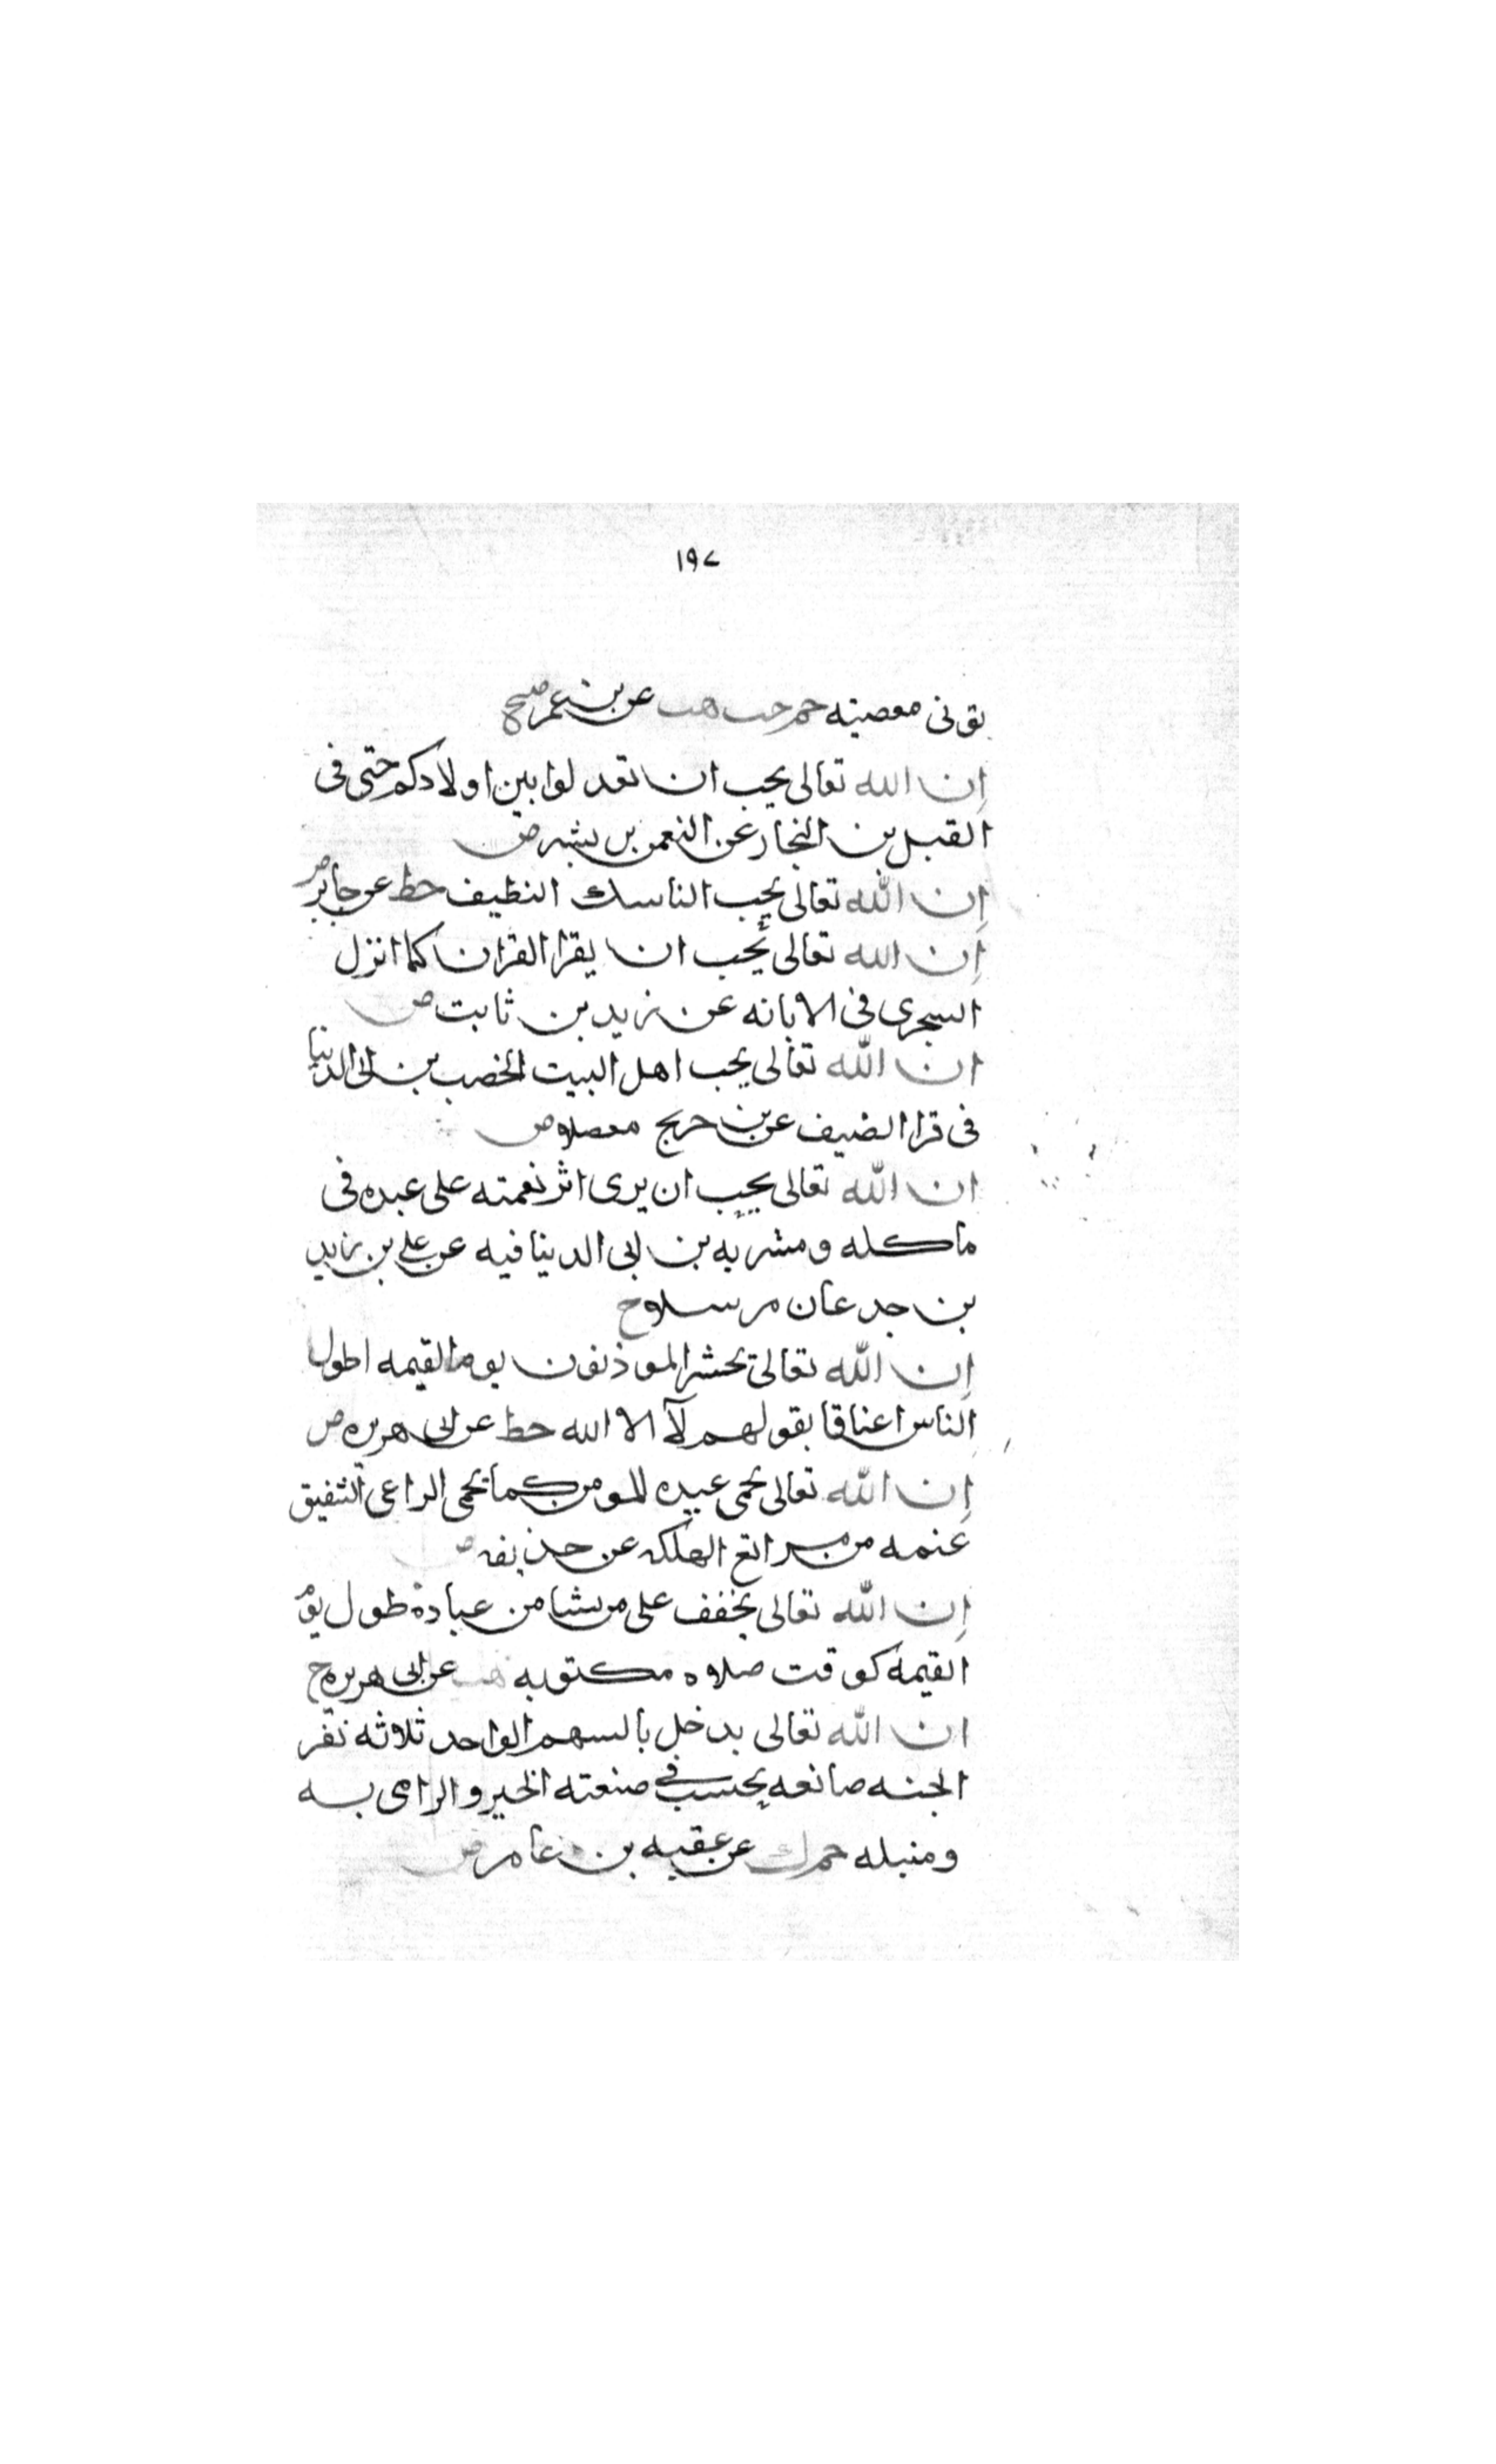 ١٩٧
تؤتى معصيته حم حب هب عن بن عمر صح
إن الله تعالى يحب ان تعدلوا بين اولادكم حتى فى
القبل بن النجار عن النعمن بن بشير ض
إن الله تعالى يحب الناسك النظيف خط عن جابر ض
إن الله تعالى يحب ان يقرا القران كما انزل
السجزى فى الابانه عن زيد بن ثابت ض
ان الله تعالى يحب اهل البيت الخصب بن ابى الدنيا
فى قرا الضيف عن بن جريج معضلا ض
ان الله تعالى يحب ان يرى اثر نعمته على عبده فى
ماكله ومشربه بن ابى الدنيا فيه عن على بن زيد
بن جدعان مرسلا ح
إن الله تعالى يحشر الموذنون يوم القيمه اطول
الناس اعناقا بقولهم لآ الا الله خط عن ابى هريره ض
إن الله تعالى يحمى عبده المومن كما يحمى الراعى الشفيق
غنمه من مراتع الهلكه عن حذيفه ض
إن الله تعالى يخفف على من يشا من عباده طول يوم
القيمه كوقت صلاه مكتوبه هب عن ابى هريره ح
ان الله تعالى يدخل بالسهم الواحد ثلاثه نفر
الجنه صانعه يحتسب فى صنعته الخير والرامى به
ومنبله حم ك عن عقبه بن عامر ض